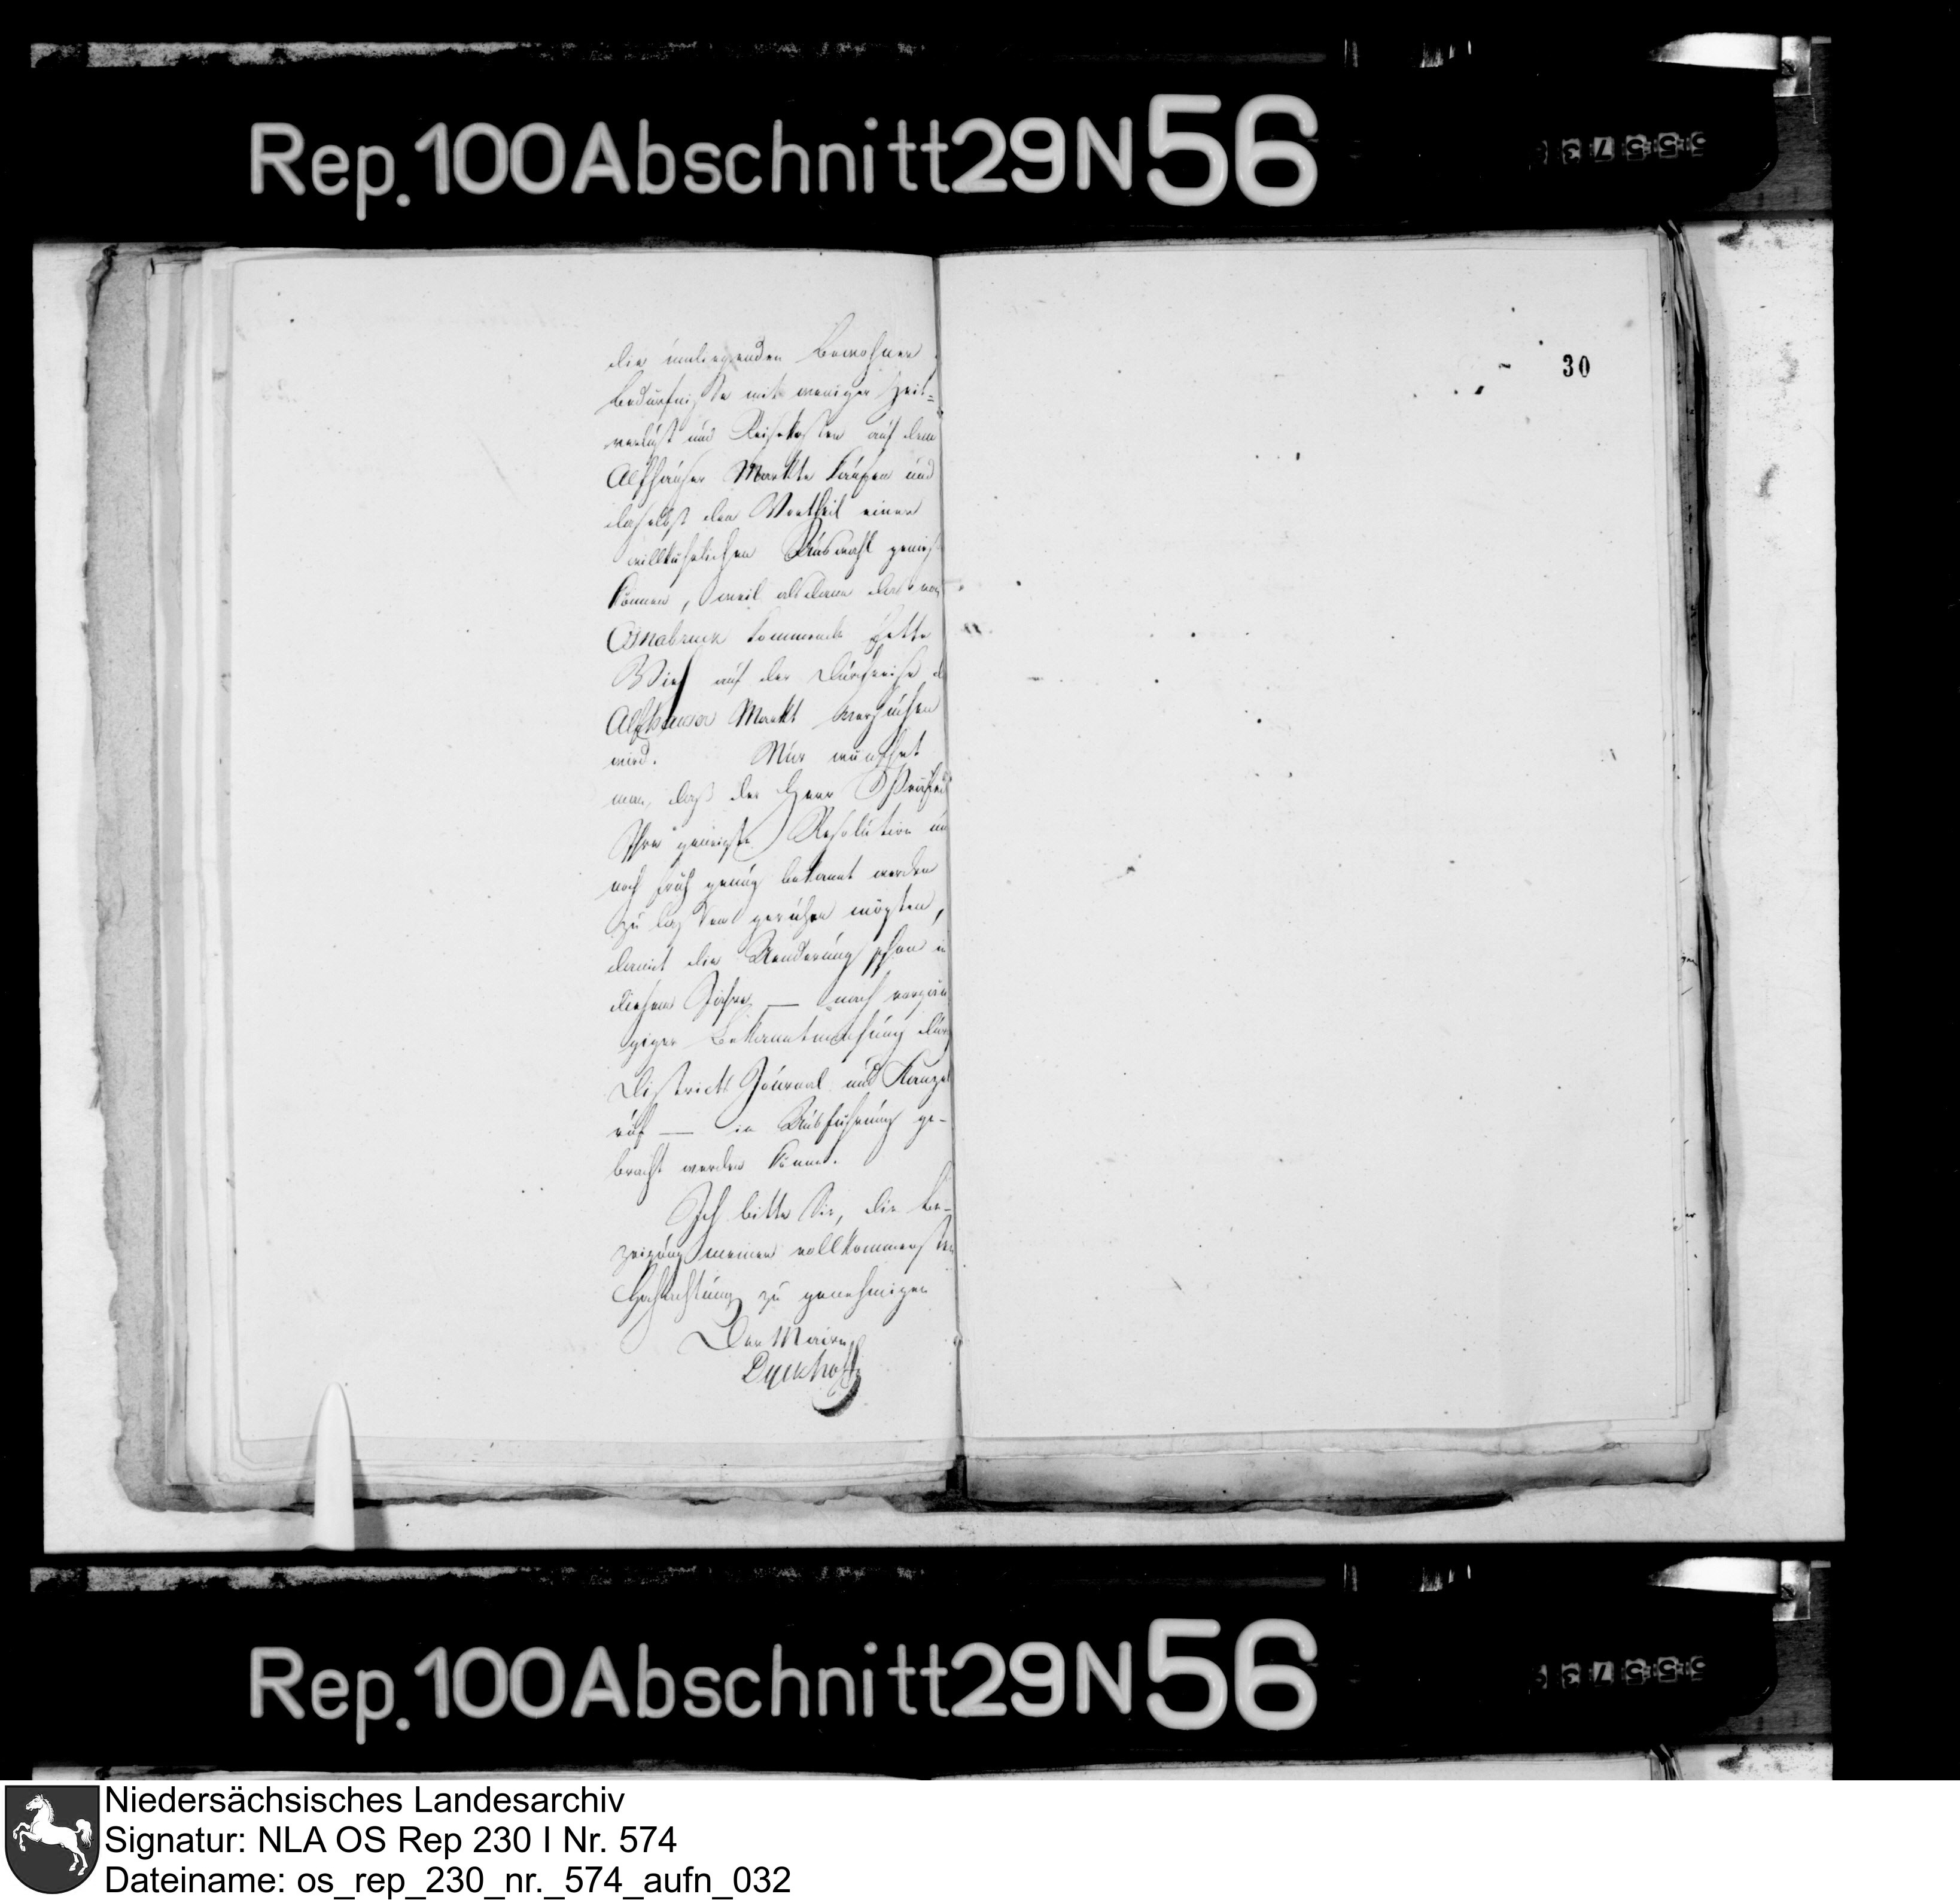 Rep. 100 Abschnitt 29 N 56
30
die umliegenden Bewohner
Bedürfnisse mit weniger Zeit=
verlust und Reisekosten auf dem
Alfhauser Markte kaufen und
daselbst den Vortheil einer
willkuhrlichen Auswahl genies
können, weil alsdann das von
Osnabruck kommende fette
Vieh auf der Durchreise d
Alfhauser Markt besuchen
wird. Nur wünschet
man, daß der Herr
Ihre geneigte Resolution un
noch früh genug bekannt werden
zu lassen geruhen mögten,
damit die Aenderung schon in
diesem Jahre — nach vorgän
giger Bekanntmachung durch
Districts Journal und Kanzel
ruf — in Ausfuhrung ge-
bracht werden könne.
Ich bitte Sie, die Be-
zeigung meiner vollkommensten
Hochachtung zu genehmigen
Der Maire
Dyckhoff
Rep. 100 Abschnitt 29 N 56
Niedersächsisches Landesarchiv
Signatur: NLA OS Rep 230 I Nr. 574
Dateiname: os_rep_230_nr._574_aufn_032